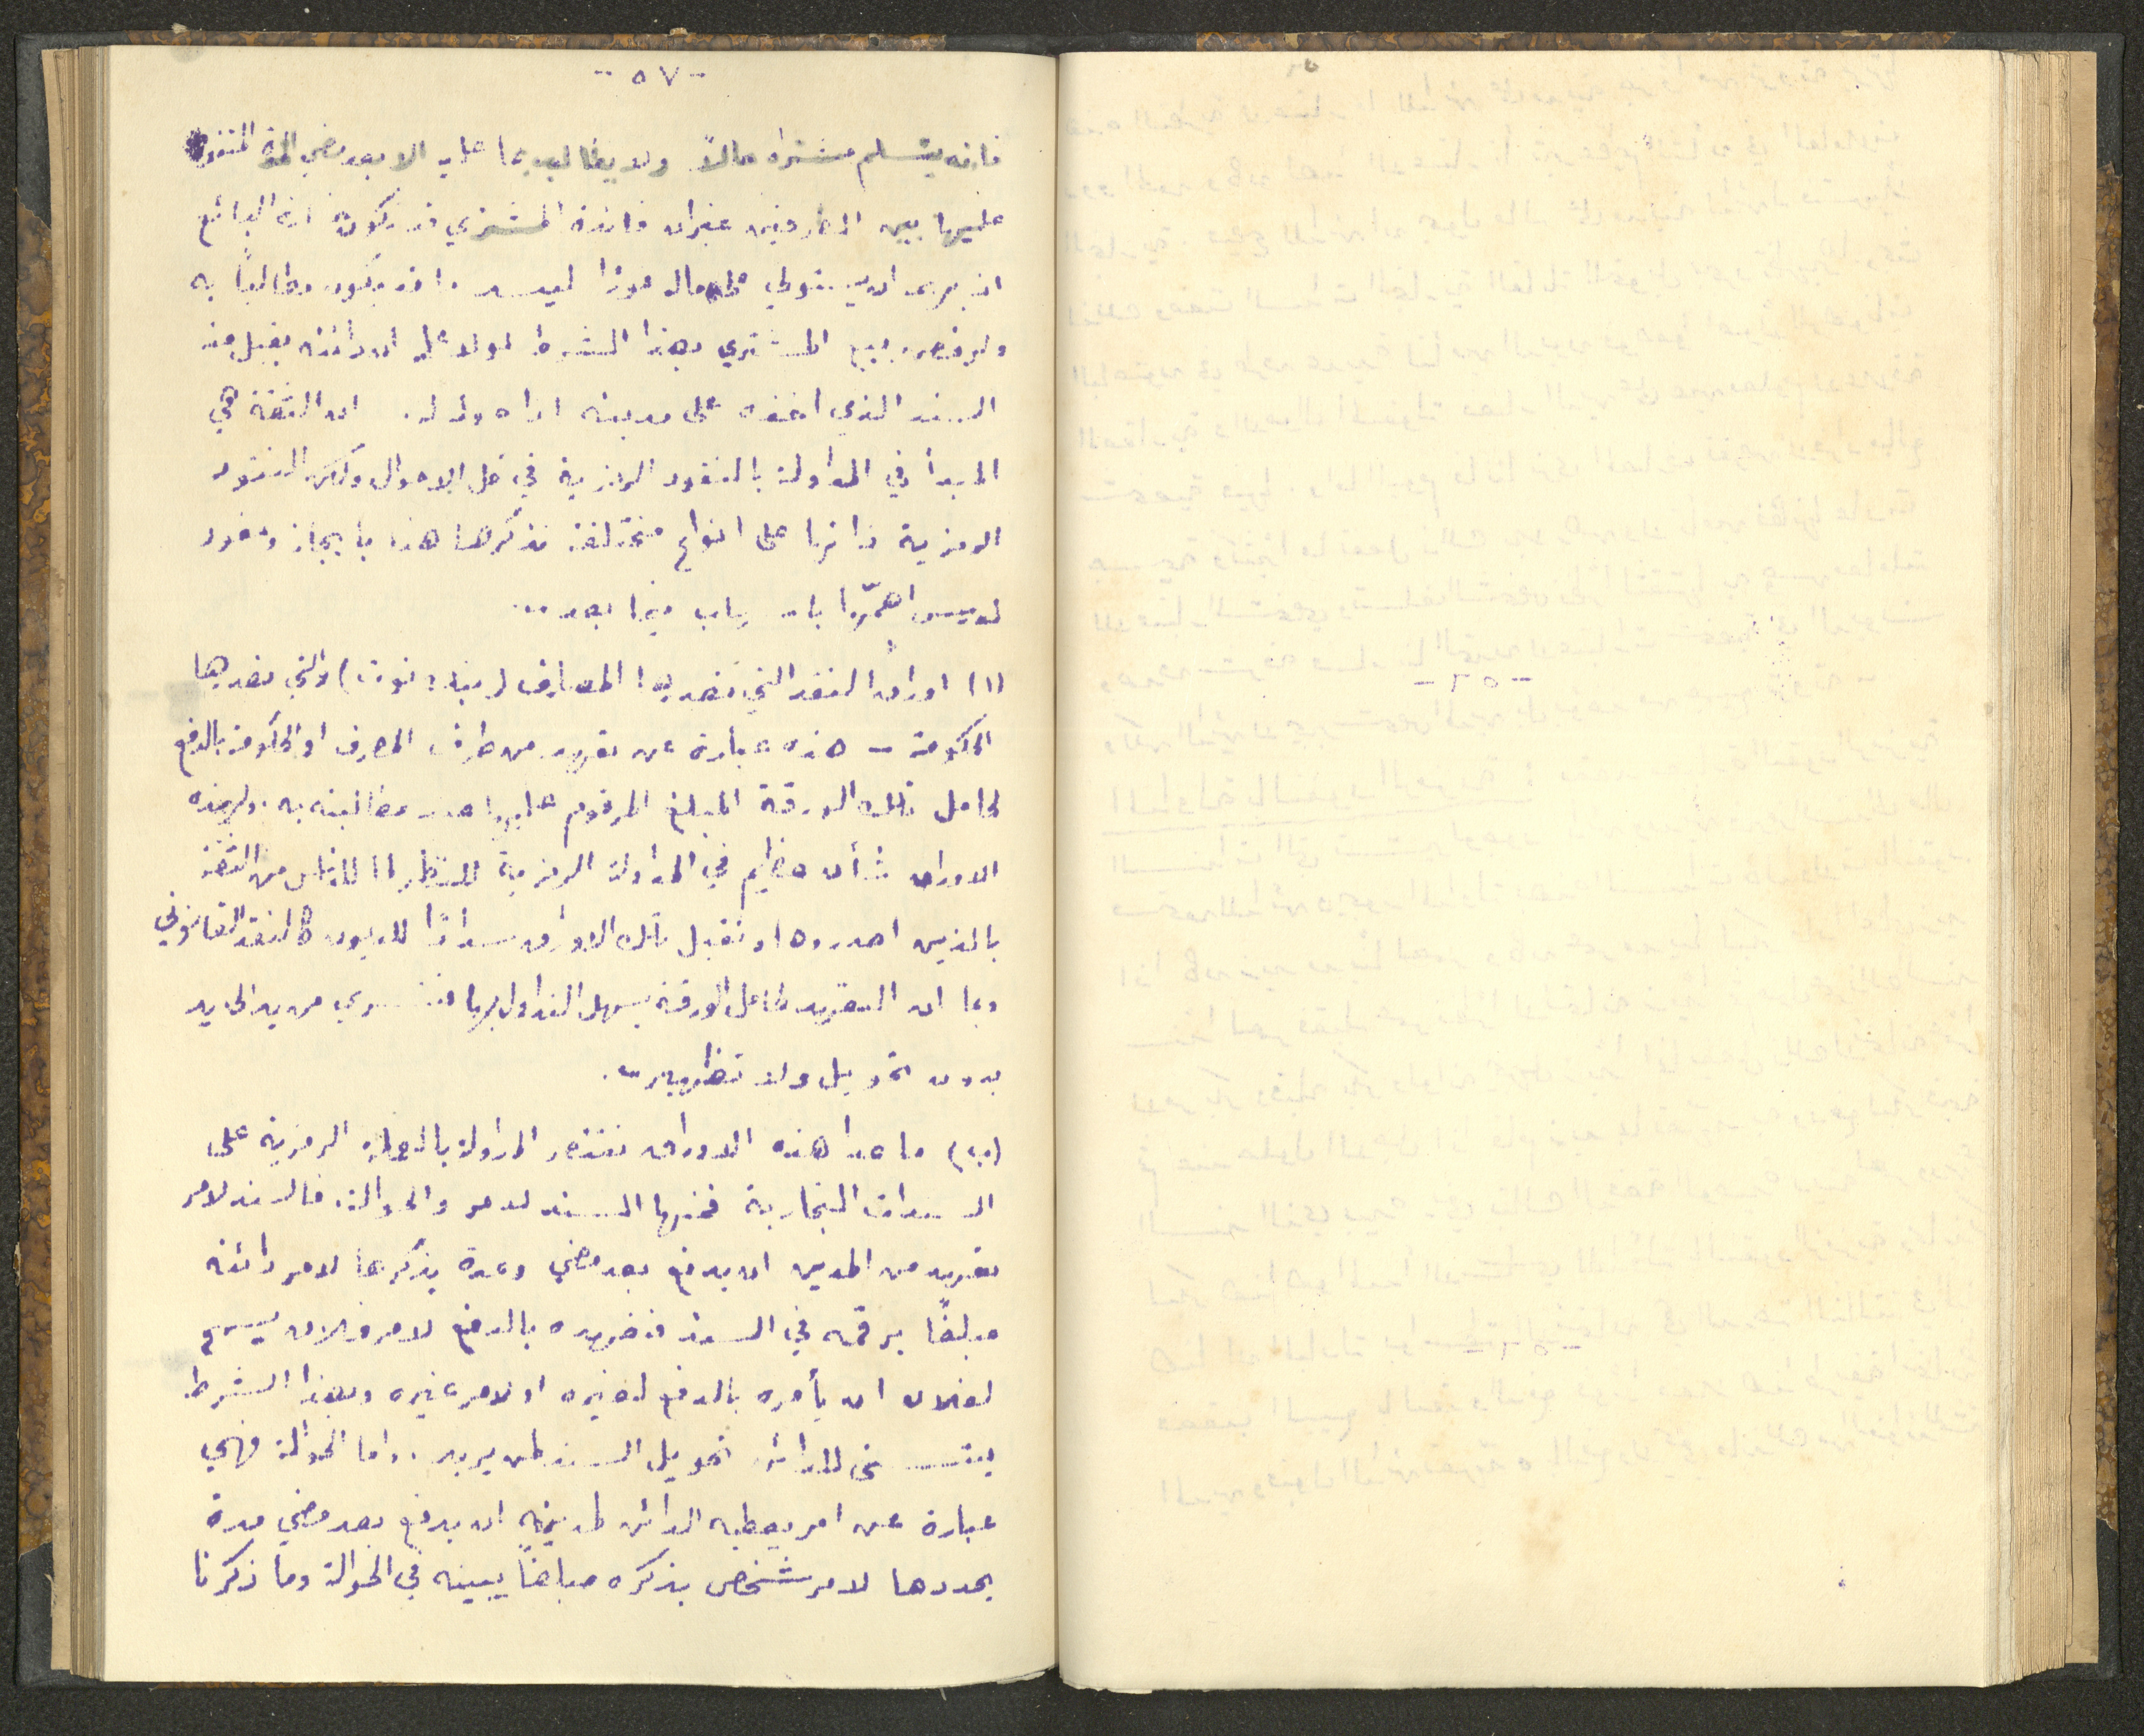 -٥٧-
فانه يتسلم مشتراه حالاً. ولا يطالب بما عليه الا بعد مضي المدة المتفق
عليها بين الطرفين غير ان فائدة المشتري قد تكون البائع
ان يستولي على مال ليسد ما قد يكون مطالباً به
ولرفض بيع المشتري بهذا الشرط لولا علمه ان دائنه يقبل منه
السند الذي اخذه على مدينه اداءً له. ان الثقة هي
المبدأ في المداولة بالنقود الرمزية في كل الاحوال ولكن النقود
الرمزية ذاتها على انواع مختلفة نذكرها هنا بايجاز ونعود
لدرس اهمّها باسهاب فيما بعد ..
(١) اوراق النقد التي تصدرها المصارف (بنك نوت) والتي تصدرها
الحكومة - هذه عبارة عن تعهد من طرف المصرف او الحكومة بالدفع
لحامل تلك الورقة المبلغ المرقوم عليها عند مطالبته به. ولهذه
الاوراق شأن عظيم في المداولة الرمزية للنظر لما للناس من الثقة
بالذين اصدروها وتقبل تلك الاوراق سداداً للديون كالنقد القانوني
وبما ان التعهد لحامل الورقة يسهل التداول بها فتسري من يد الى يد
بدون تحويل ولا تظهير.
(ب) ما عدا هذه الاوراق تقتصر المداولة بالعملة الرمزية على
السندات التجارية فمنها السند لامر والحوالة. فالسند لامر
تعهد من المدين ان يدفع بعد مضي وعدة يذكرها لامر دائنه
مبلغاً يرقمه في السند فتعهده بالدفع لامر فلان يسمح
لفلان ان يأمره بالدفع لغيره او لامر غيره وبهذا الشرط
يتسنى للدائن تحويل السند لمن يريد. واما الحوالة فهي
عبارة عن امر يعطيه الدائن لمدينه ان يدفع بعد مضي مدة
يحددها لامر شخص يذكره مبلغاً يبينه في الحوالة وما ذكرنا